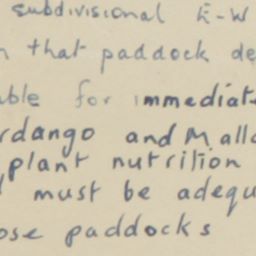 subdivisional E-W
that paddock de
for immediat
rdango and Mall
plant nutrition
must be adequ
ose paddocks